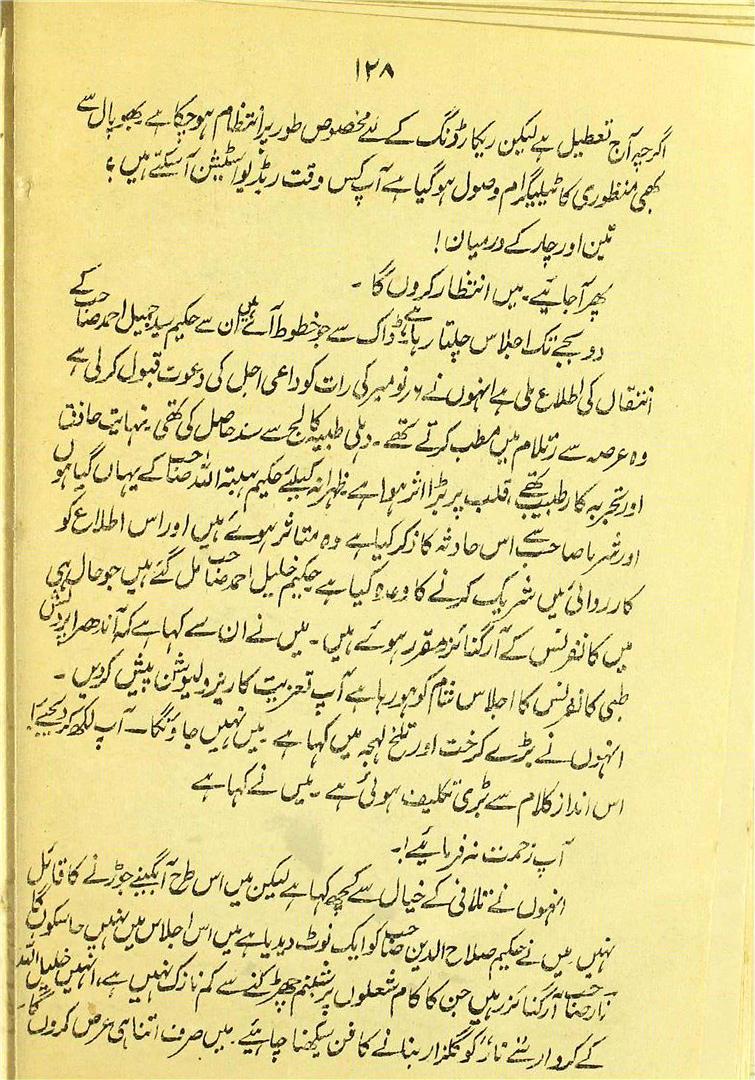 ۱۲۸
اگرچہ آج تعطیل ہے لیکن ریکارڈنگ کے لئے مخصوص طور پر انتظام ہوچکا ہے۔ بھوپال سے
بھی منظوری کا ٹیلیگرام وصول ہوگیا ہے آپ کس وقت ریڈیو اسٹیشن آسکتے ہیں؟
تین اور چار کے درمیان!
پھر آجائیے۔ میں انتظار کروں گا۔
دو بجے تک اجلاس چلتا رہا ہے ڈاک سے جو خطوط آئے ہیں ان سے حکیم سید جمیل احمد صاحب کے
انتقال کی اطلاع ملی ہے انہوں نے ۶ نومبر کی رات کو داعی اجل کی دعوت قبول کرلی ہے
وہ عرصہ سے رتلام میں مطب کرتے تھے۔ دہلی طبیہ کالج سے سند حاصل کی تھی۔ نہایت حاذق
اور تجربہ کار طبیب تھے، قلب پر بڑا اثر ہوا ہے۔ ظہرانہ کیلئے حکیم ہبتہ اللہ صاحب کے یہاں گیا ہوں
اور شرما صاحب سے اس حادثہ کا ذکر کیا ہے وہ متاثر ہوئے ہیں اور اس اطلاع کو
کارروائی میں شریک کرنے کا وعدہ کیا ہے۔ حکیم خلیل احمد صاحب مل گئے ہیں جو حال ہی
میں کانفرنس کے آرگنائزر مقرر ہوئے ہیں۔ میں نے ان سے کہا ہے کہ آندھرا پردیش
طبی کانفرنس کا اجلاس شام کو ہورہا ہے آپ تعزیت کا ریزولیوشن پیش کردیں۔
انہوں نے بڑے کرخت اور تلخ لہجہ میں کہا ہے۔ میں نہیں جاؤنگا۔ آپ لکھ کر دیجیئے!
اس انداز کلام سے بڑی تکلیف ہوئی ہے۔ میں نے کہا ہے
آپ زحمت نہ فرمائیے!۔
انہوں نے تلافی کے خیال سے کچھ کہا ہے لیکن میں اس طرح آبگینے جوڑنے کا قائل
نہیں۔ میں نے حکیم صلاح الدین صاحب کو ایک نوٹ دیدیا ہے میں اس اجلاس میں نہیں جاسکوں گا
صاحب آرگنائزر ہیں جن کا کام شعلوں پر شبنم چھڑکنے سے کم نازک نہیں ہے، انہیں خلیل اللہ
کے کردار سے نار کو گلزار بنانے کا فن سیکھنا چاہیئے۔ میں صرف اتنا ہی عرض کروں گا۔